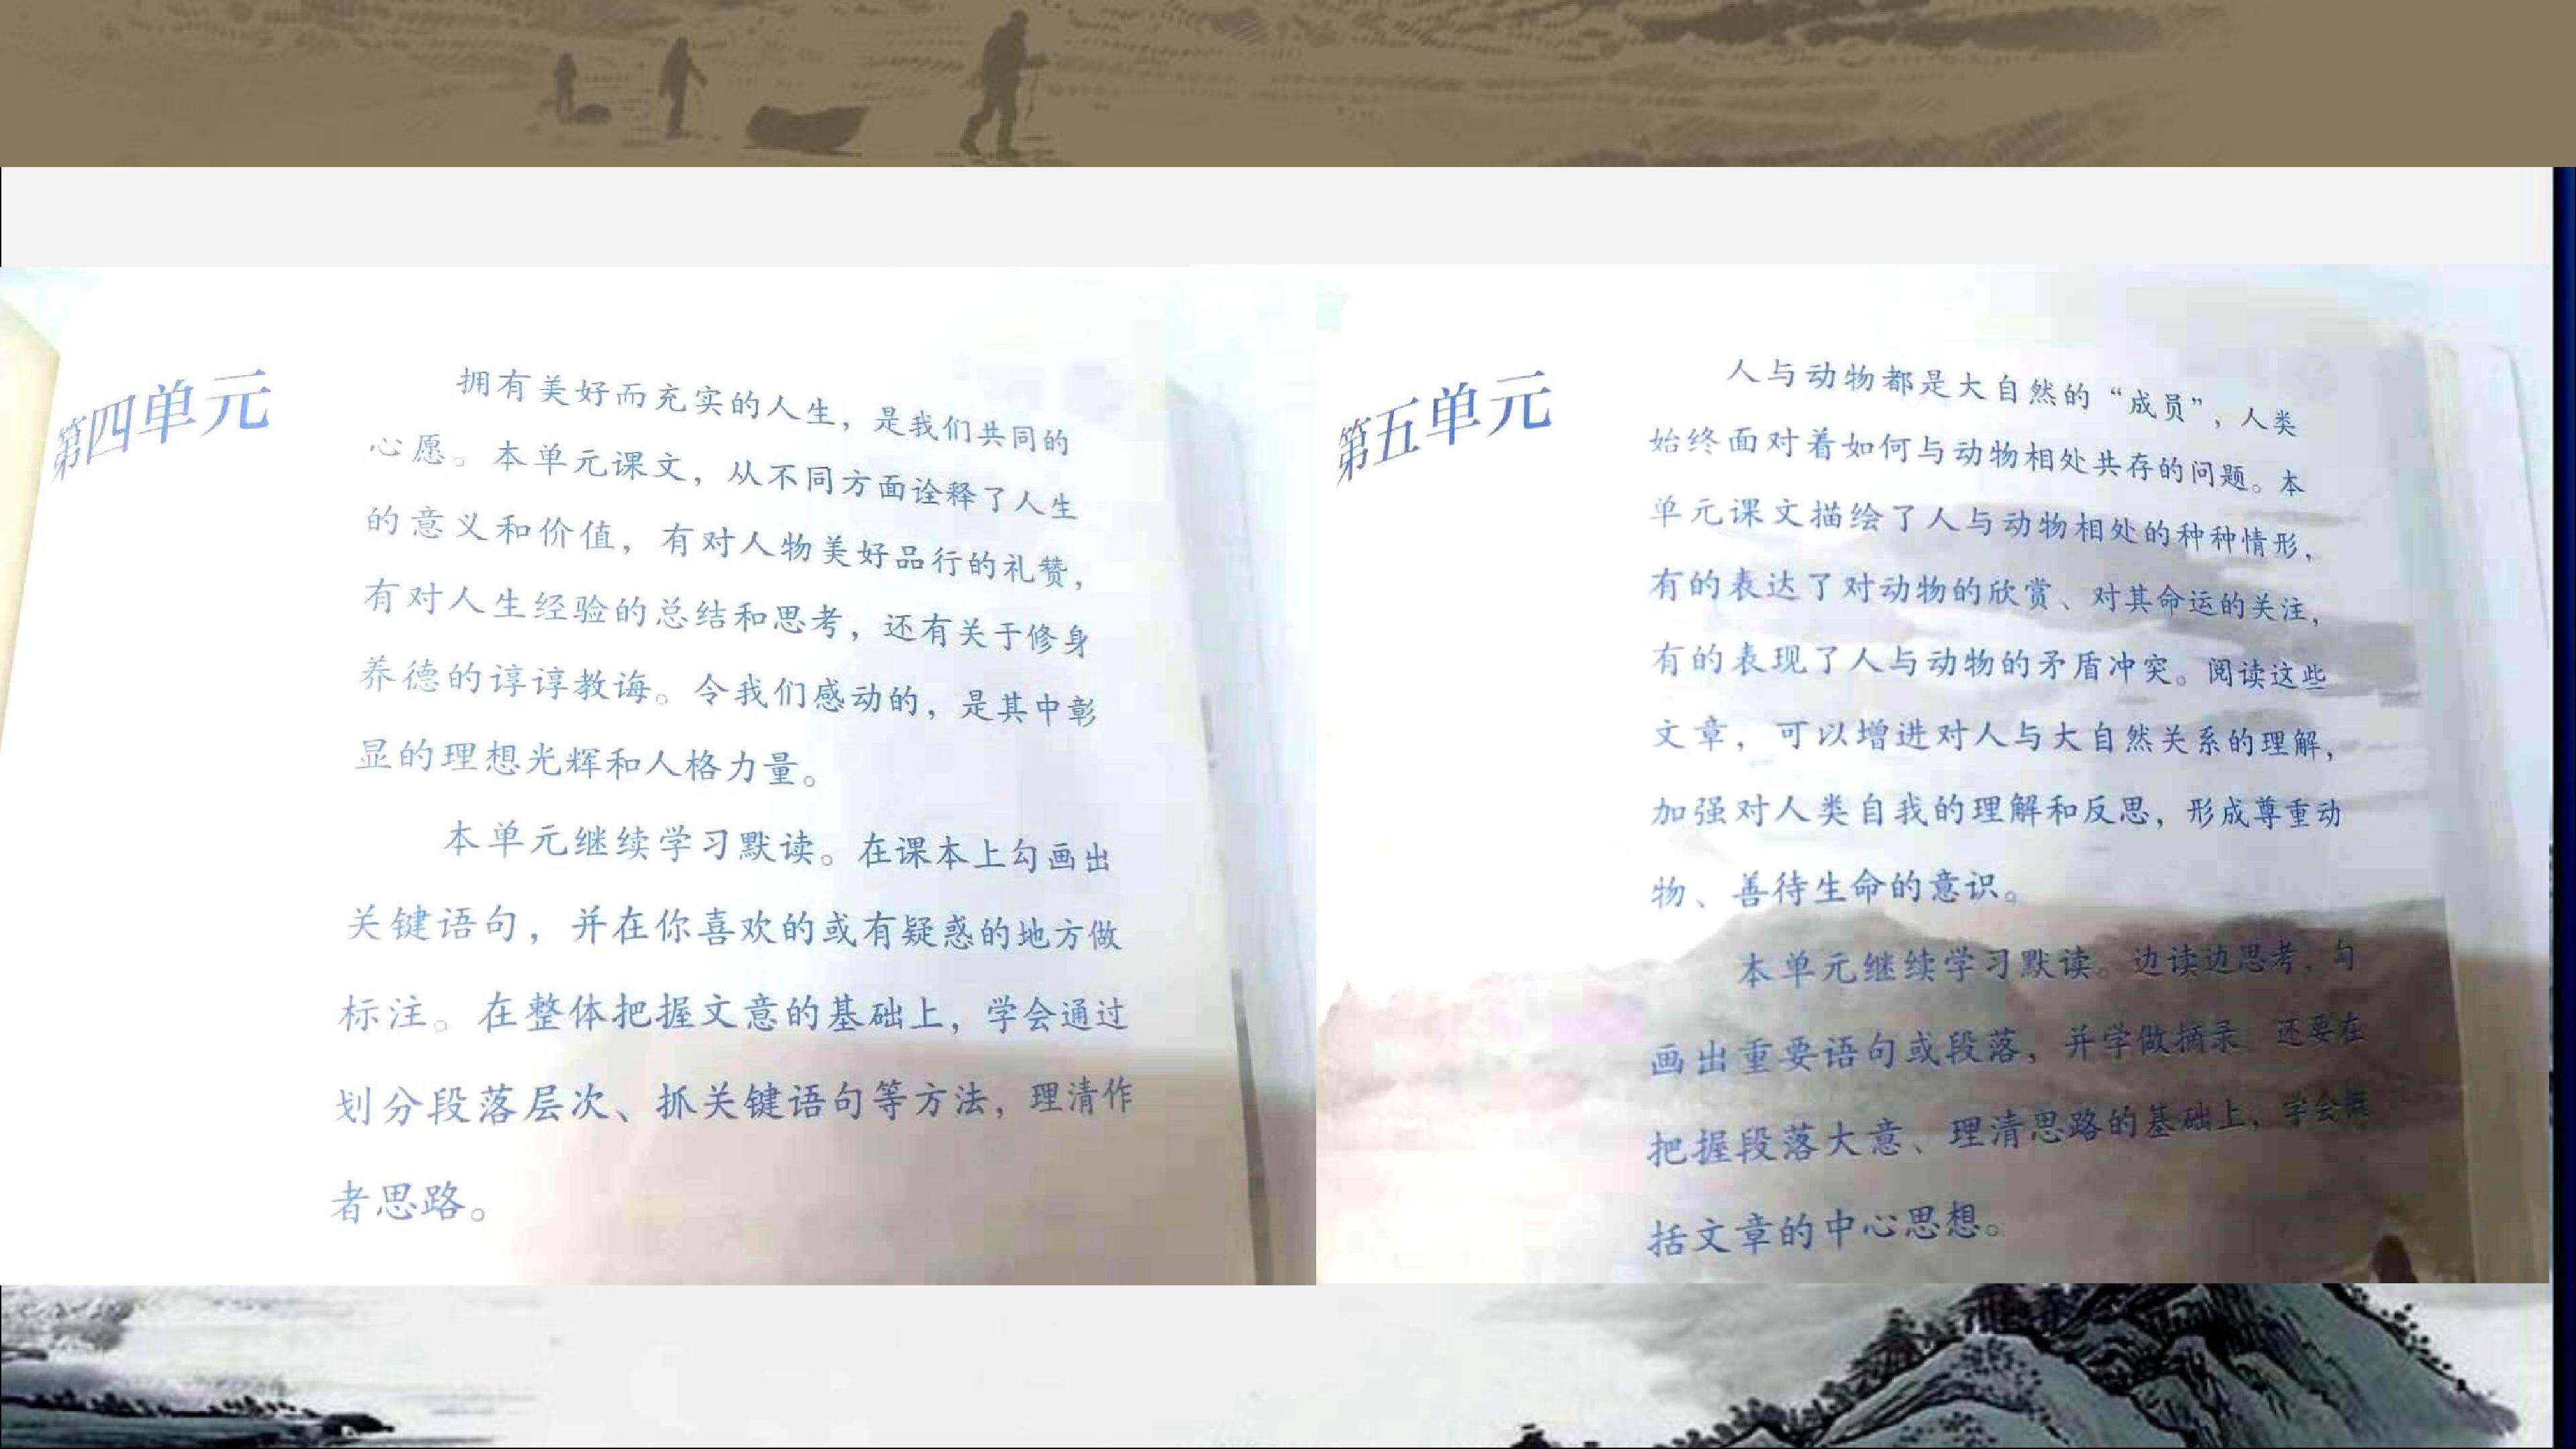 第四单元
拥有美好而充实的人生，是我们共同的
心愿。本单元课文，从不同方面诠释了人生
的意义和价值，有对人物美好品行的礼赞，
有对人生经验的总结和思考，还有关于修身
养德的谆谆教诲。令我们感动的，是其中彰
显的理想光辉和人格力量。
本单元继续学习默读。在课本上勾画出
关键语句，并在你喜欢的或有疑惑的地方做
标注。在整体把握文意的基础上，学会通过
划分段落层次、抓关键语句等方法，理清作
者思路。
第五单元
人与动物都是大自然的“成员”，人类
始终面对着如何与动物相处共存的问题。本
单元课文描绘了人与动物相处的种种情形，
有的表达了对动物的欣赏、对其命运的关注，
有的表现了人与动物的矛盾冲突。阅读这些
文章，可以增进对人与大自然关系的理解，
加强对人类自我的理解和反思，形成尊重动
物、善待生命的意识。
本单元继续学习默读。边读边思考，勾
画出重要语句或段落，并学做摘录 还要在
把握段落大意、理清思路的基础上，学会概
括文章的中心思想。